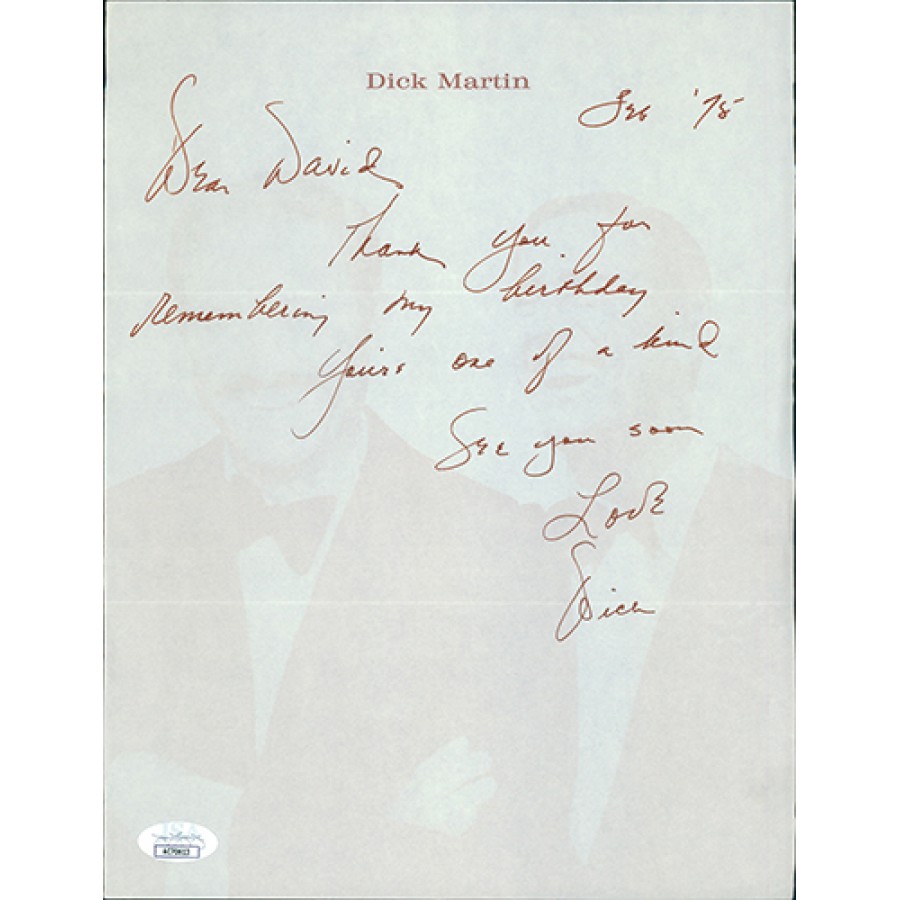 Dick Martin
'75
Dear David
Thank you for
remembering my birthday
Yours one of a kind
See you soon
Love
Dick